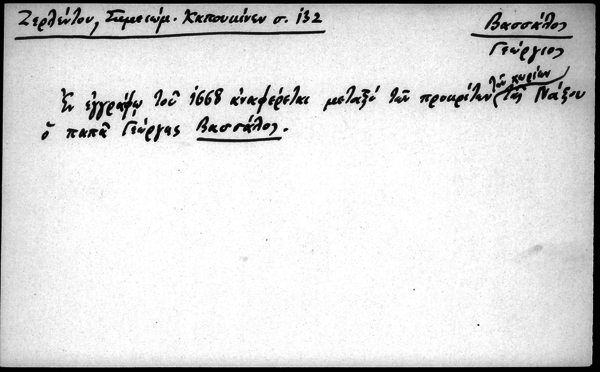 Ζερλέντου, Σημειώμ. Καπουκίνων σ. 132
Βασσάλος
Γεώργιος
Ἐν ἐγγράφῳ τοῦ 1668 ἀναφέρεται μεταξὺ τῶν προκρίτων τῶν χωρίων τῆς Νάξου
ὁ παπᾶ Γεώργης Βασσάλος.